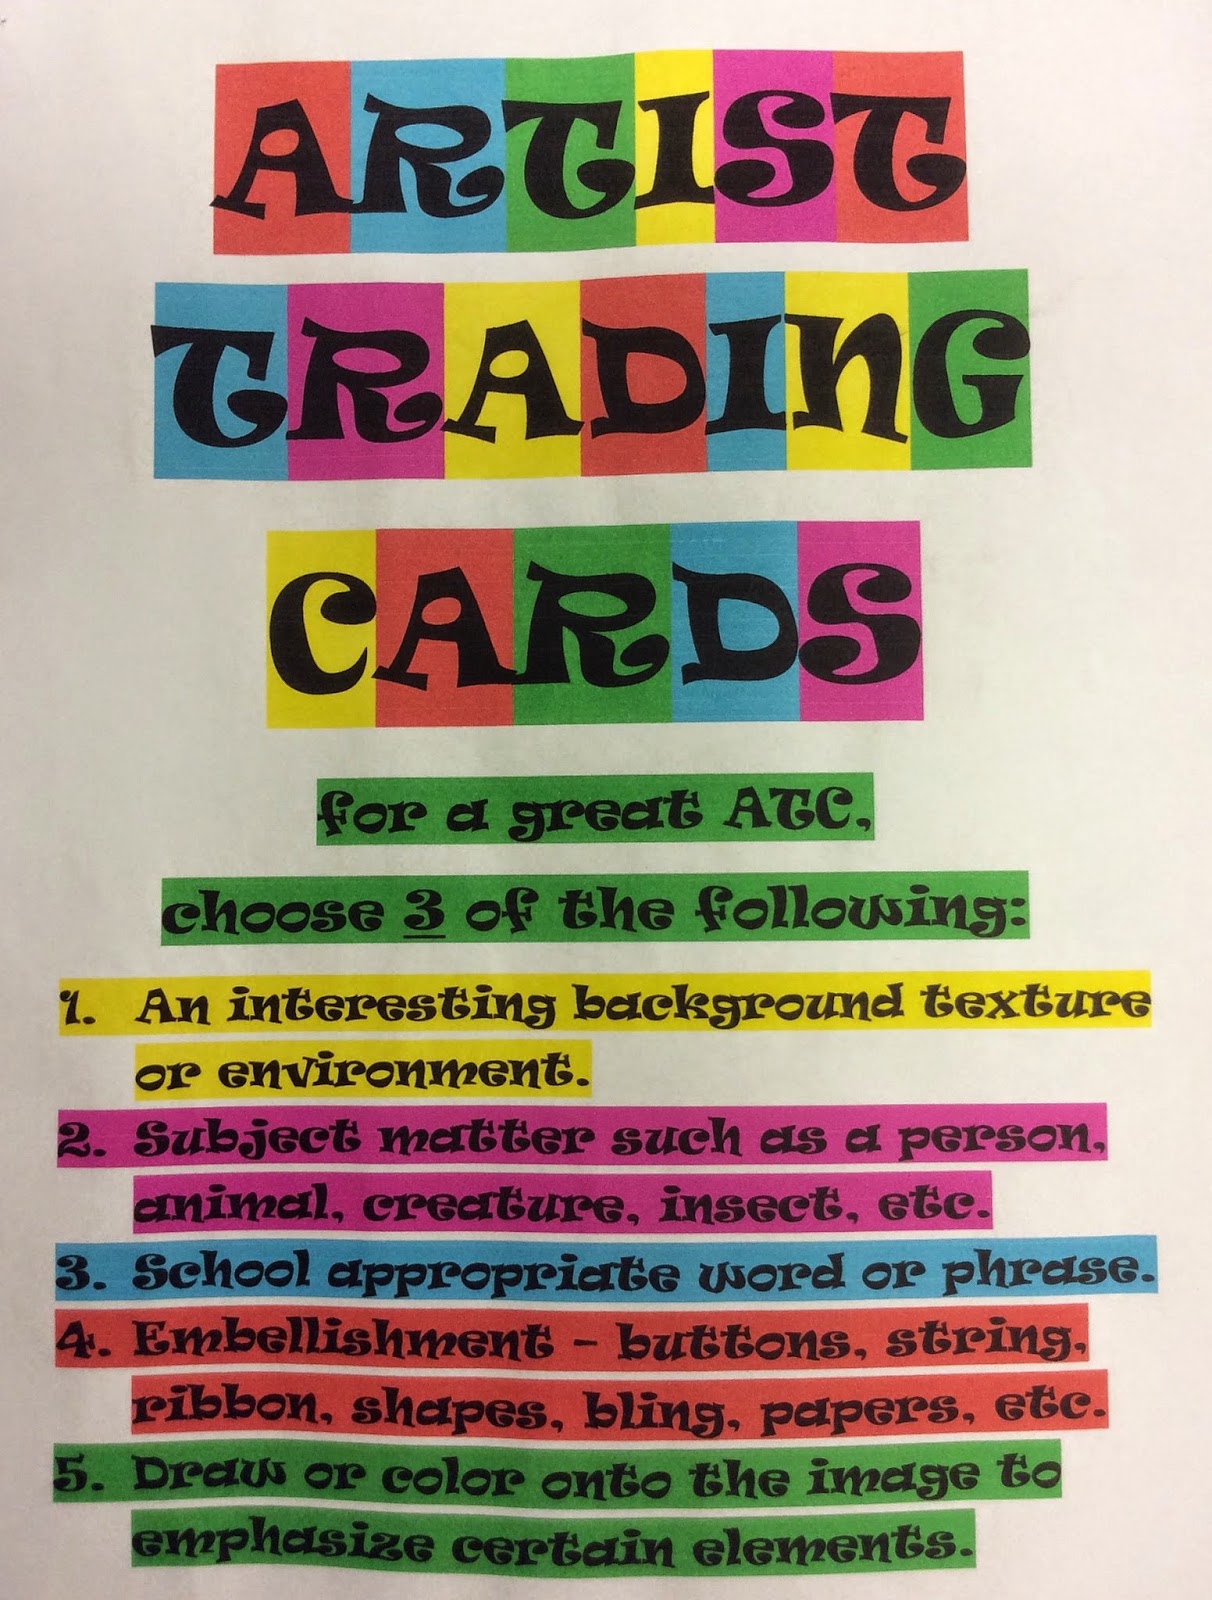 ARTIST
TRADING
CARDS
for a great ATC,
choose 3 of the following:
1. An interesting background texture
or environment.
2. Subject matter such as a person,
animal, creature, insect, etc.
3. School appropriate word or phrase.
4. Embellishment – buttons, string,
ribbon, shapes, bling, papers, etc.
5. Draw or color onto the image to
emphasize certain elements.